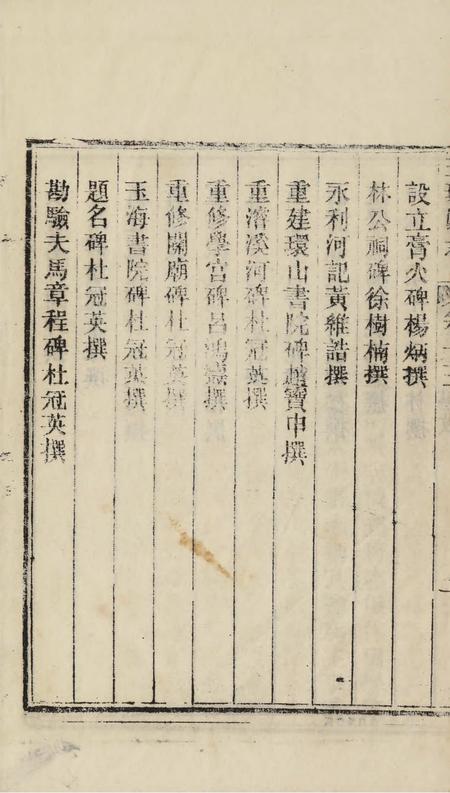 設立膏火碑楊炳撰
林公祠碑徐樹楠撰
永利河記黃維誥撰
重建環山書院碑趙寶申撰
重濬溪河碑杜冠英撰
重修學宮碑呂鴻燾撰
重修關廟碑杜冠英撰
玉海書院碑杜冠英撰
題名碑杜冠英撰
勘驗夫馬章程碑杜冠英撰